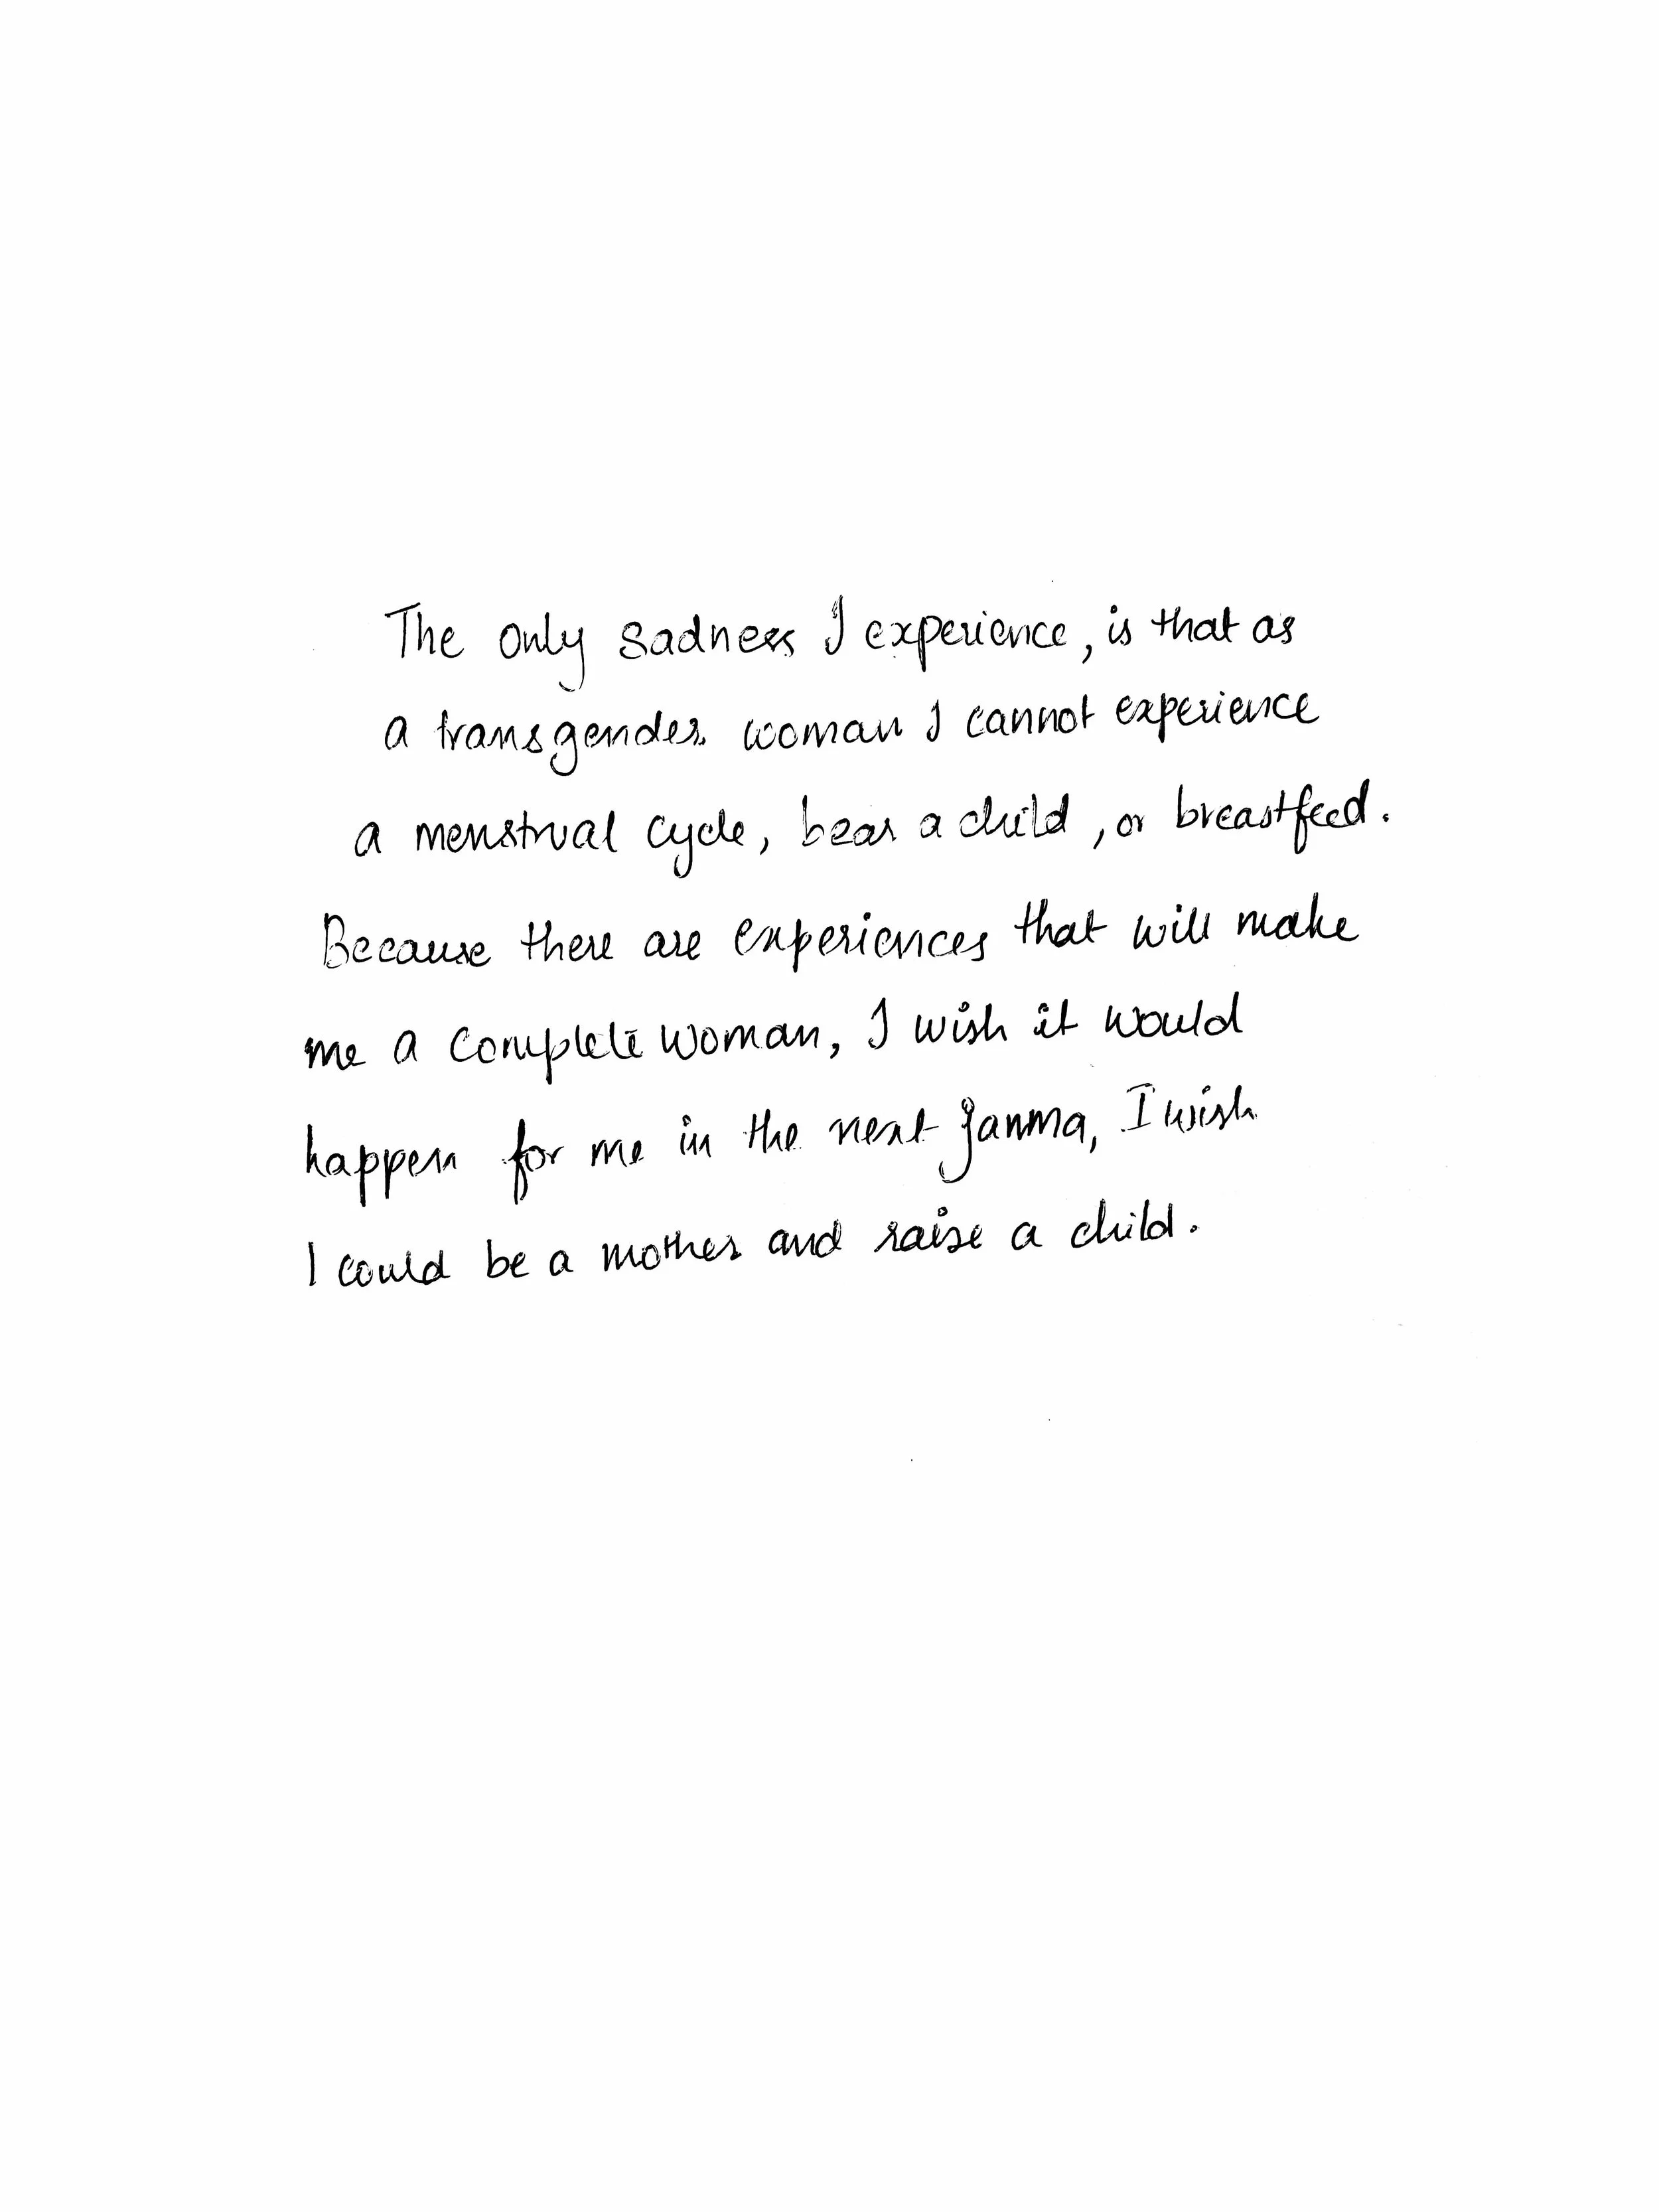 The only sadness I experience, is that as
a transgender woman I cannot experience
a menstrual cycle, bear a child, or breastfeed.
Because there are experiences that will make
me a complete woman, I wish it would
happen for me in the next Janma, I wish
I could be a mother and raise a child.